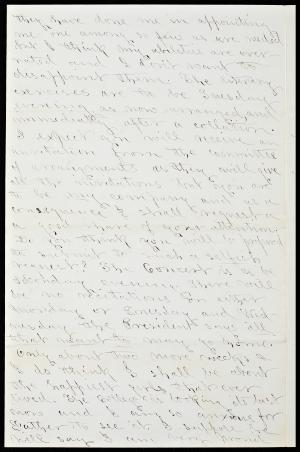 they have done me in appointing
me one among so few as are needed
but I think my abilities are over
rated and I don't want to
disappoint them. The literary
exercises are to be Tuesday
evening as now arranged, and
immediately after a collation.
I expect you will receive an
invitation from the committee
of arrangements as they will give
all the invitations but you are
to be my company and as a
consequence I shall request a
a good share of your attention.
Do you think you will be prepared
to submit to such a selfish
request? The Concert is to be
Monday evening there will
be no recitations on either
Monday or Tuesday and Wed-
nesday the President says all
that want to may go home.
Only about two more weeks &
I do think I shall be about
the happiest girl that ever
lived. The village is looking its best
now and I am so anxious for
Father to see it. I suppose he
will say I am very proud